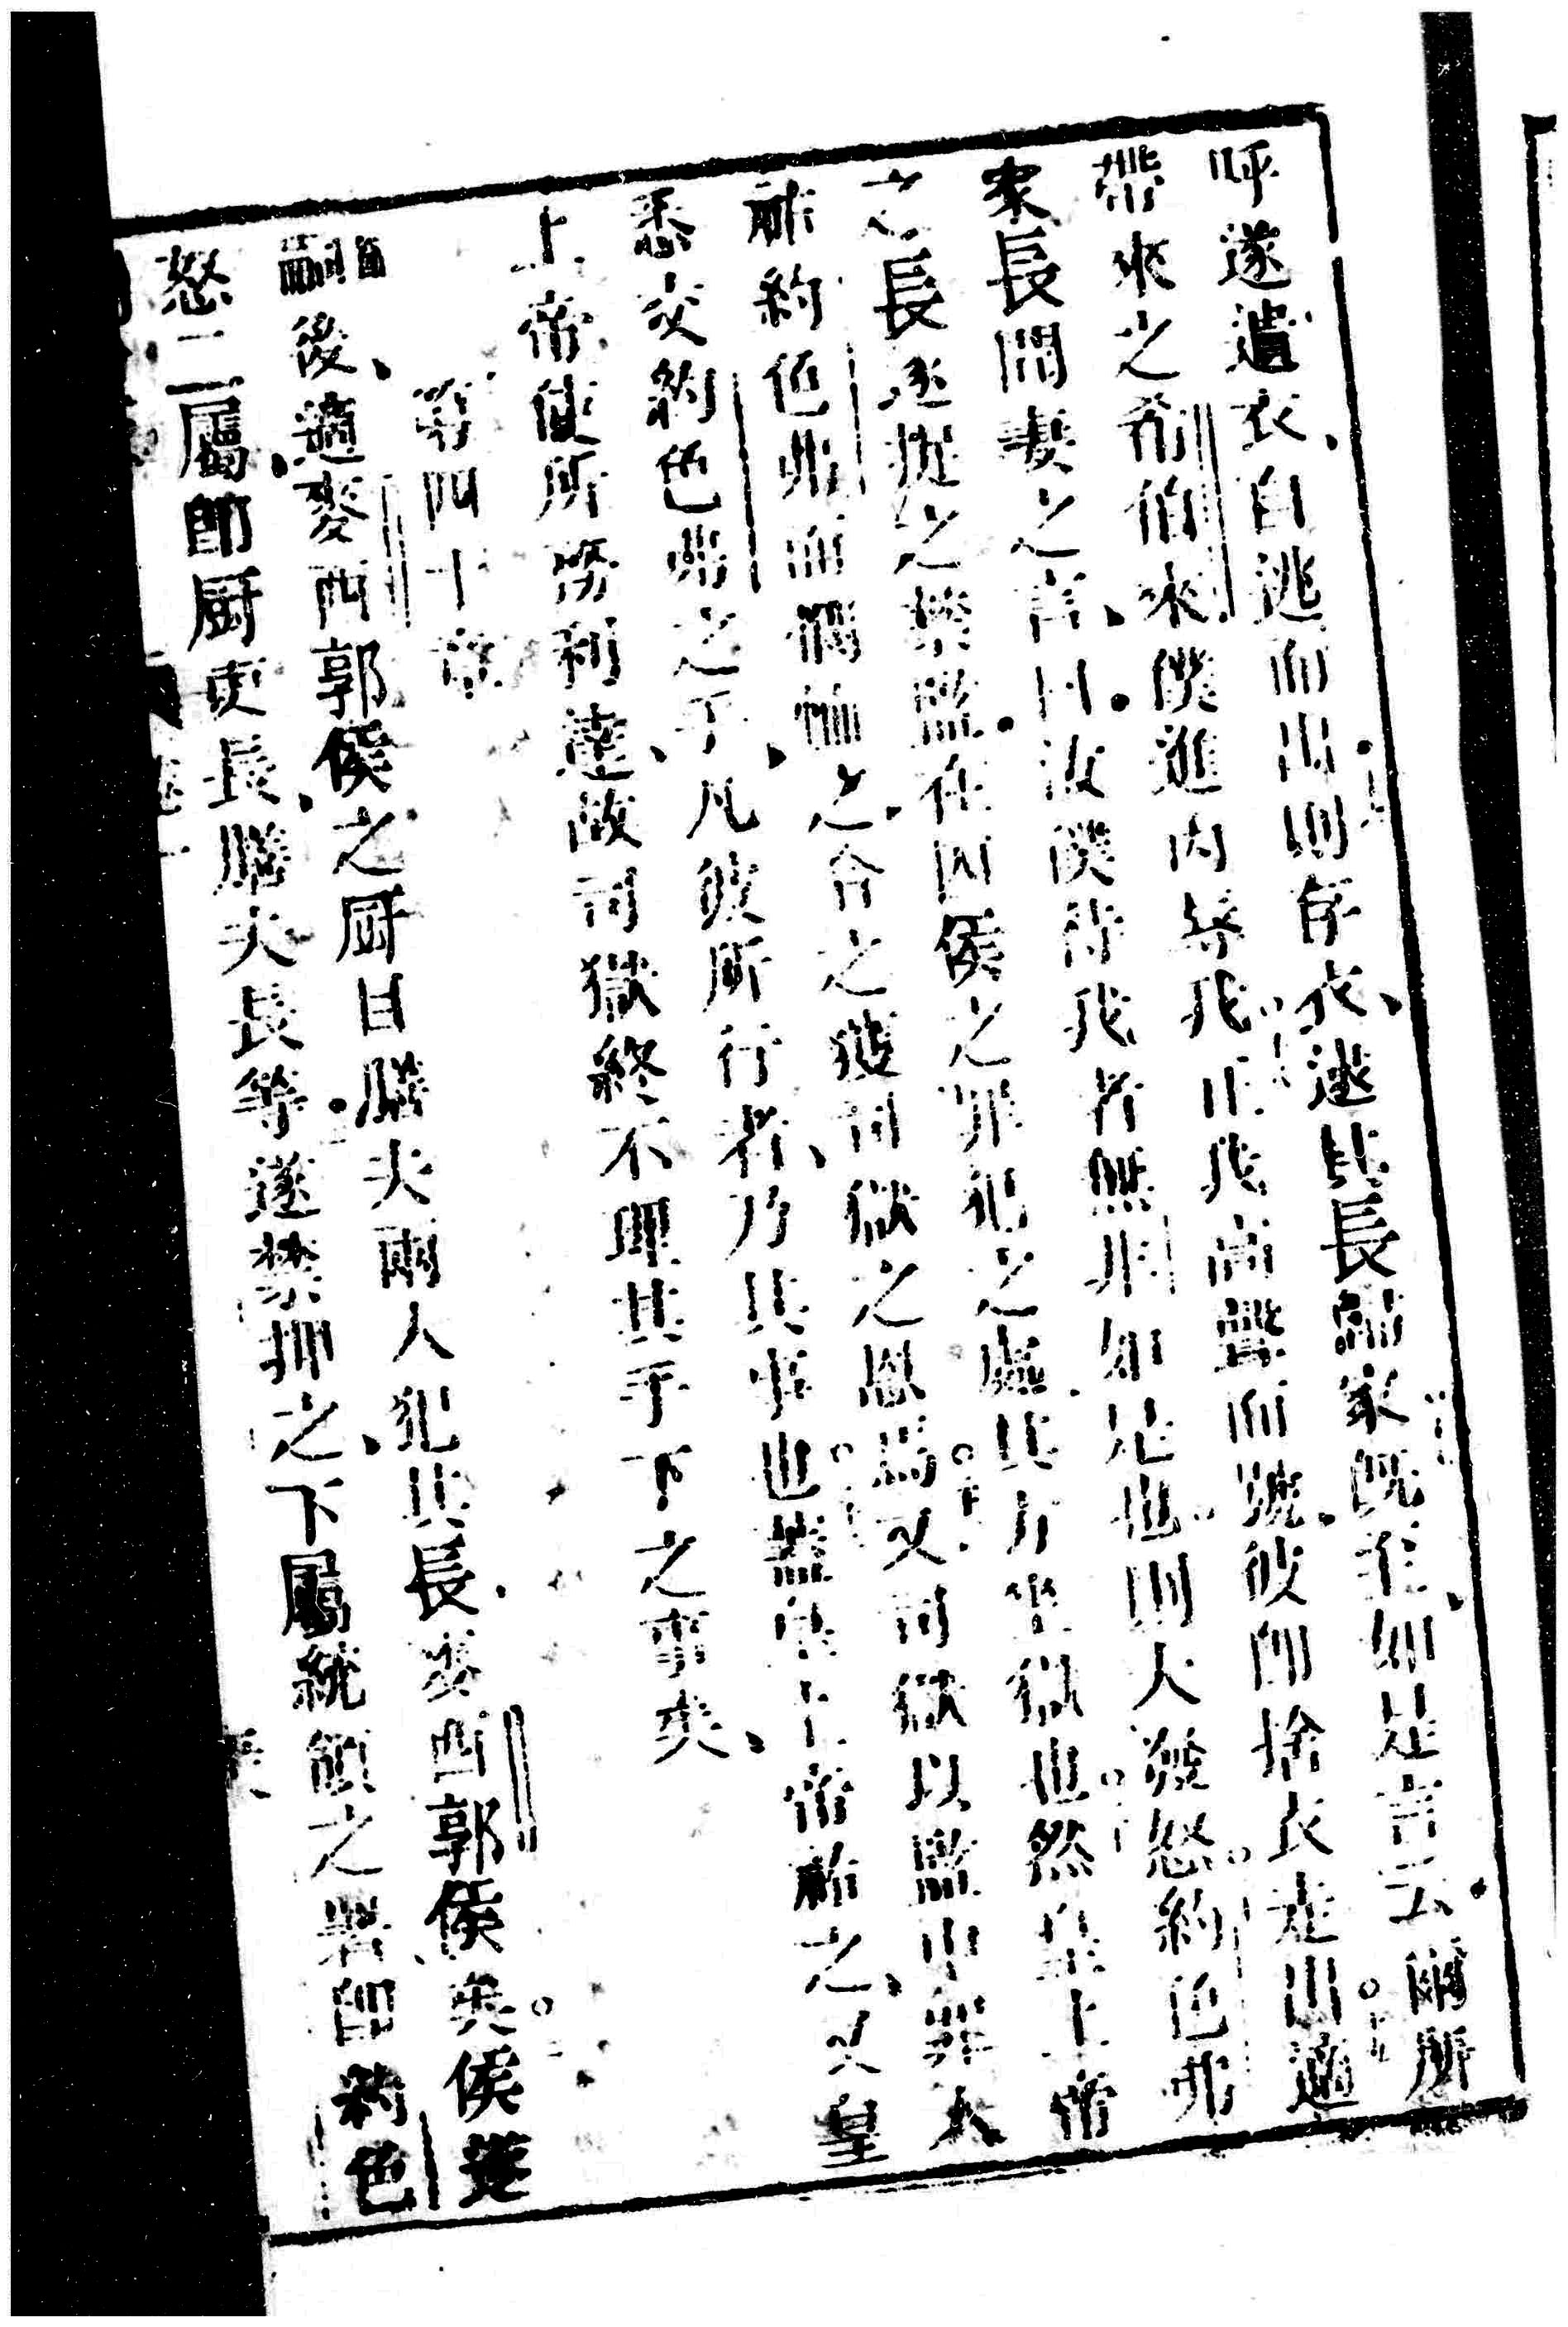 呼遂遺衣自逃而出則存衣逮其長歸家既至如是言云爾所
帶來之希伯來僕進內辱我正我高聲而號彼即捨衣走出適
家長聞妻之言曰汝僕待我者無非如是也則大發怒約色弗
之長遂挺之禁監在囚侯之罪犯之處其方坐獄也然皇上帝
祐約色弗而憫恤之令之獲司獄之恩焉又司獄以監中罪人
悉交約色弗之手凡彼所行者乃其事也蓋皇上帝祐之又皇
上帝使所務利達故司獄終不理其手下之事矣
第四十章
嗣後適麥西郭侯之厨目膳夫兩人犯其長麥西郭侯矣侯遂
怒二屬即厨吏長膳夫長等遂禁押之下屬統領之署即約色